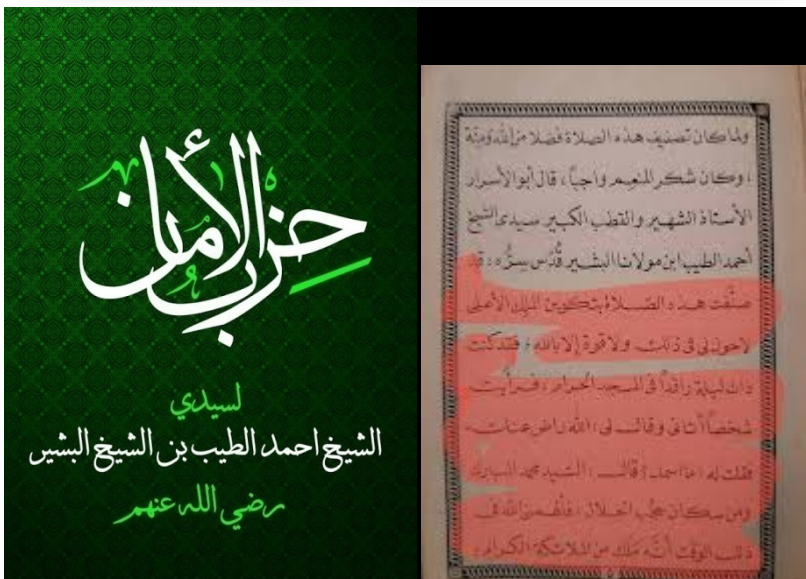 حزب الأمان
لسيدي
الشيخ احمد الطيب بن الشيخ البشير
رضي الله عنهم
ولما كان تصنيف هذه الصلاة فضلا من الله ومنة
، وكان شكر المنعم واجباً ، قال أبو الأسرار
الأستاذ الشهير والقطب الكبير سيدي الشيخ
أحمد الطيب ابن مولانا البشير قُدّس سِرُّه : قد
صنّفت هذه الصلاة بتكوين الملك الأعلى
لاحول لي في ذلك ولا قوة إلا بالله ، فقد كنت
ذات ليلة راقداً في المسجد الحرام ، فرأيت
شخصاً أتاني وقال لي : الله راض عنك ،
فقلت له : ما اسمك ؟ قال : السيد محمد المبارك
ومن سكان حجب الجلال ، فألهمني الله في
ذلك الوقت أنّه ملك من الملائكة الكرام ،